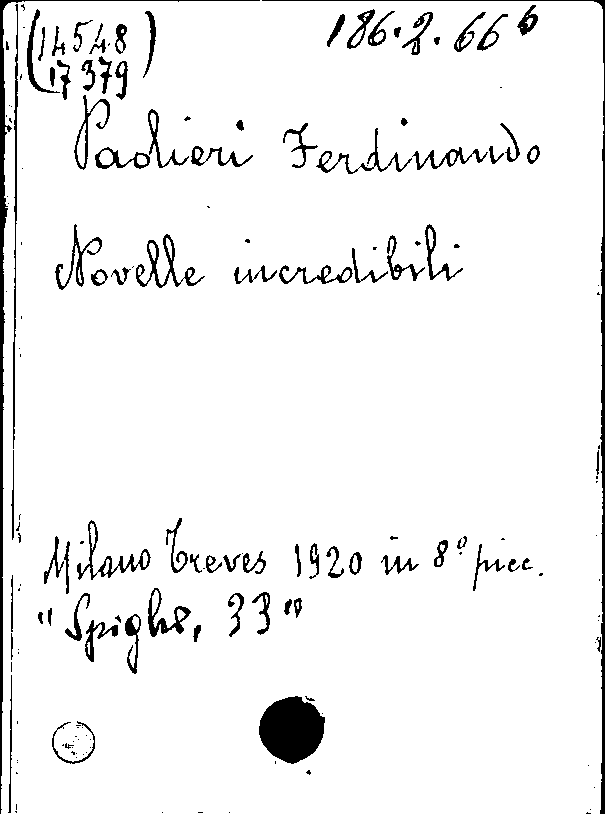 (14548
17379)
186.2.66 b
Paolieri Ferdinando
Novelle incredibili
Milano Treves 1920 in 8º picc.
"Spighe, 33"